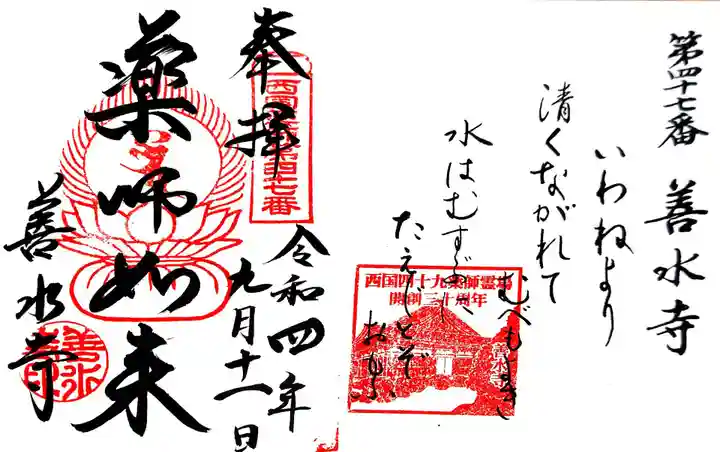 第四十七番 善水寺
いわねより
清くながれて
水はむすぶ
たえじとぞ
おもふ
西国四十九薬師霊場
開創三十周年
善水寺
奉拝
令和四年
九月十一日
薬師如来
善水寺